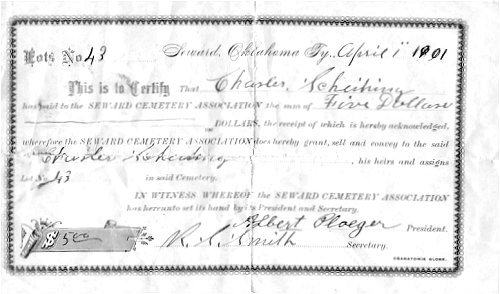 Lots No 43 Seward, Oklahoma Ty., April 1 1901
This is to Certify That Charles Scheihing
has paid to the SEWARD CEMETERY ASSOCIATION the sum of Five Dollars
DOLLARS, the receipt of which is hereby acknowledged,
wherefore the SEWARD CEMETERY ASSOCIATION does hereby grant, sell and convey to the said
Charles Scheihing , his heirs and assigns
Lot No. 43 in said Cemetery.
IN WITNESS WHEREOF the SEWARD CEMETERY ASSOCIATION
has hereunto set its hand by its President and Secretary.
Albert Ploeger President.
$5.00 R. S. Smith Secretary.